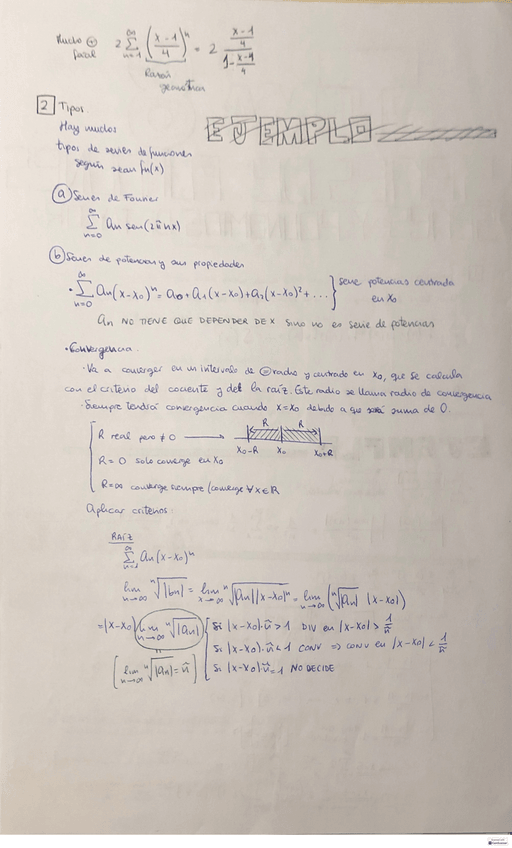 Mucho ⊕
fácil 2 ∑_{n=1}^{∞} ((x-1)/4)^n = 2 ((x-1)/4)/(1-(x-1)/4)
Razón
geométrica
2 Tipos
Hay muchos
tipos de series de funciones
según sean fn(x)
EJEMPLO
a Series de Fourier
∑_{n=0}^{∞} an sen(2πnx)
b Series de potencias y sus propiedades
· ∑_{n=0}^{∞} an(x-x0)^n = a0 + a1(x-x0) + a2(x-x0)² + ... } serie potencias centrada
en x0
an NO TIENE QUE DEPENDER DE X sino no es serie de potencias
· Convergencia.
· Va a converger en un intervalo de radio y centrado en x0, que se calcula
con el criterio del cociente y del la raíz. Este radio se llama radio de convergencia
· Siempre tendrá convergencia cuando x=x0 debido a que será suma de 0.
R real pero ≠ 0 → R R
x0-R x0 x0+R
R = 0 solo converge en x0
R=∞ converge siempre (converge ∀x∈R
Aplicar criterios:
RAÍZ
∑_{n=1}^{∞} an(x-x0)^n
lim_{n→∞} ⁿ√|bn| = lim_{x→∞} ⁿ√|an||x-x0|^n = lim_{n→∞} (ⁿ√|an| |x-x0|)
= |x-x0| lim_{n→∞} ⁿ√|an| [ Si |x-x0|·ũ > 1 DIV en |x-x0| > 1/ũ
Si |x-x0|·ũ < 1 CONV ⇒ CONV en |x-x0| < 1/ũ
[ lim_{n→∞} ⁿ√|an| = ũ ] Si |x-x0|ũ = 1 NO DECIDE